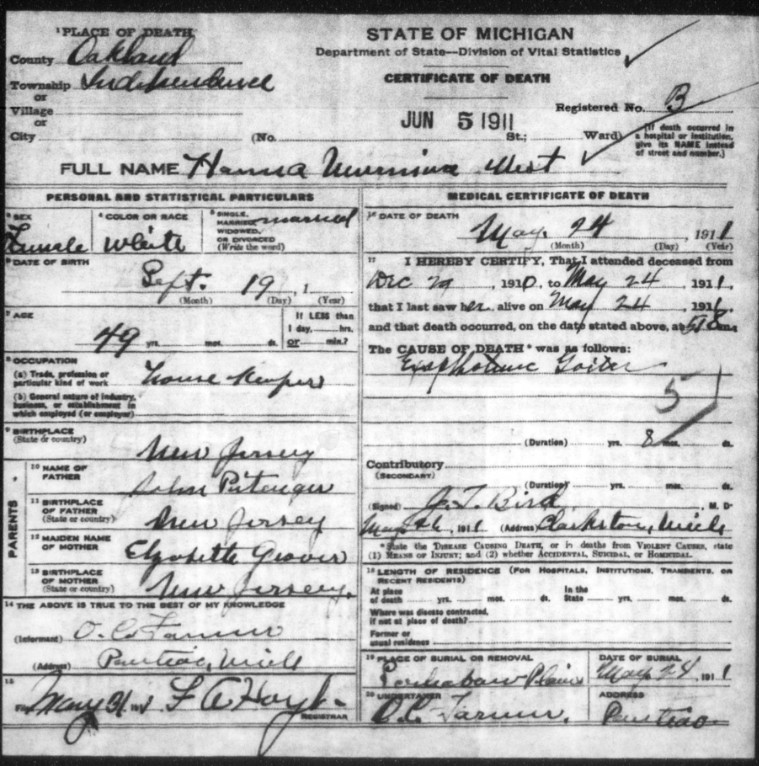 ¹PLACE OF DEATH
County Oakland
Township Independence
or
Village
or
City
STATE OF MICHIGAN
Department of State—Division of Vital Statistics
CERTIFICATE OF DEATH
Registered No. B
JUN 5 1911
(No. St.; Ward)
(If death occurred in a hospital or institution, give its NAME instead of street and number.)
FULL NAME Hanna West
PERSONAL AND STATISTICAL PARTICULARS
³ SEX Female
⁴ COLOR OR RACE White
⁵ SINGLE, MARRIED, WIDOWED, OR DIVORCED (Write the word) married
⁶ DATE OF BIRTH
Sept. 19, 1
(Month) (Day) (Year)
⁷ AGE
49 yrs. mos. ds.
If LESS than 1 day, hrs. or min.?
⁸ OCCUPATION
(a) Trade, profession or particular kind of work House Keeper
(b) General nature of industry, business, or establishment in which employed (or employer)
⁹ BIRTHPLACE
(State or country) New Jersey
PARENTS
¹⁰ NAME OF FATHER John Pitenger
¹¹ BIRTHPLACE OF FATHER (State or country) New Jersey
¹² MAIDEN NAME OF MOTHER Elzabette Groover
¹³ BIRTHPLACE OF MOTHER (State or country) New Jersey.
¹⁴ THE ABOVE IS TRUE TO THE BEST OF MY KNOWLEDGE
(Informant) O. C. Farmer
(Address) Pontiac, Mich
¹⁵
May 31 191 F A Hoyt
REGISTRAR
MEDICAL CERTIFICATE OF DEATH
¹⁶ DATE OF DEATH
May. 24, 1911
(Month) (Day) (Year)
¹⁷ I HEREBY CERTIFY, That I attended deceased from
Dec 29, 1910, to May 24 1911,
that I last saw her alive on May 24 1911,
and that death occurred, on the date stated above, at m.
The CAUSE OF DEATH* was as follows:
Exopthalmic Goiter
51
(Duration) yrs. 8 mos. ds.
Contributory
(SECONDARY)
(Duration) yrs. mos. ds.
(Signed) J. T. Bird, M. D.
May 26, 1911 (Address) Clarkston, Mich
*State the DISEASE CAUSING DEATH, or in deaths from VIOLENT CAUSES, state
(1) MEANS OF INJURY; and (2) whether ACCIDENTAL, SUICIDAL, or HOMICIDAL.
¹⁸ LENGTH OF RESIDENCE (FOR HOSPITALS, INSTITUTIONS, TRANSIENTS, OR RECENT RESIDENTS)
At place of death yrs. mos. ds. In the State yrs. mos. ds.
Where was disease contracted, if not at place of death?
Former or usual residence
¹⁹ PLACE OF BURIAL OR REMOVAL
Plain
DATE OF BURIAL
May 24, 1911
²⁰ UNDERTAKER
O. C. Farmer.
ADDRESS
Pontiac